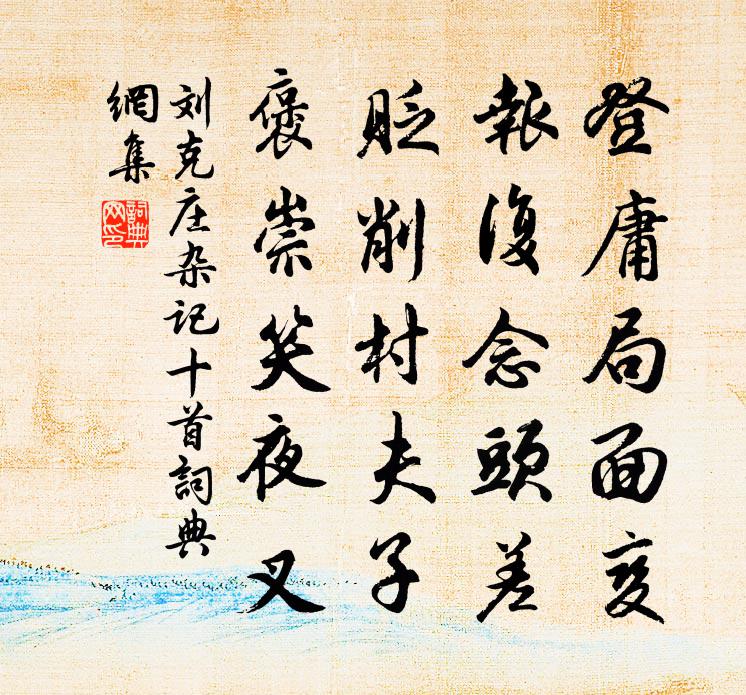 登庸局面变
報復念頭差
貶削村夫子
褒崇笑夜叉
刘克庄杂记十首詞典
網集
詞典网印